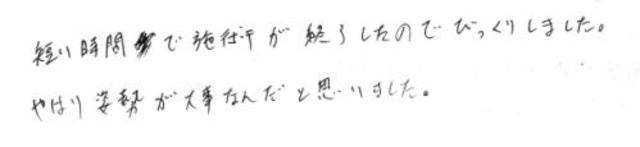 短い時間で施術が終了したのでびっくりしました。
やはり姿勢が大事なんだと思いました。